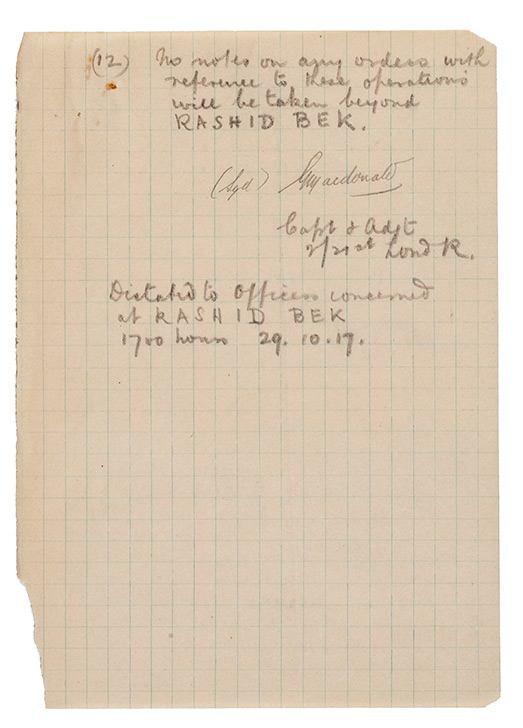 (12) No notes on any orders with
reference to these operations
will be taken beyond
RASHID BEK.
(Sgd) GMacdonald
Capt & Adjt
2/21st Lond R.
Dictated to Officers concerned
at RASHID BEK
1700 hours 29.10.17.